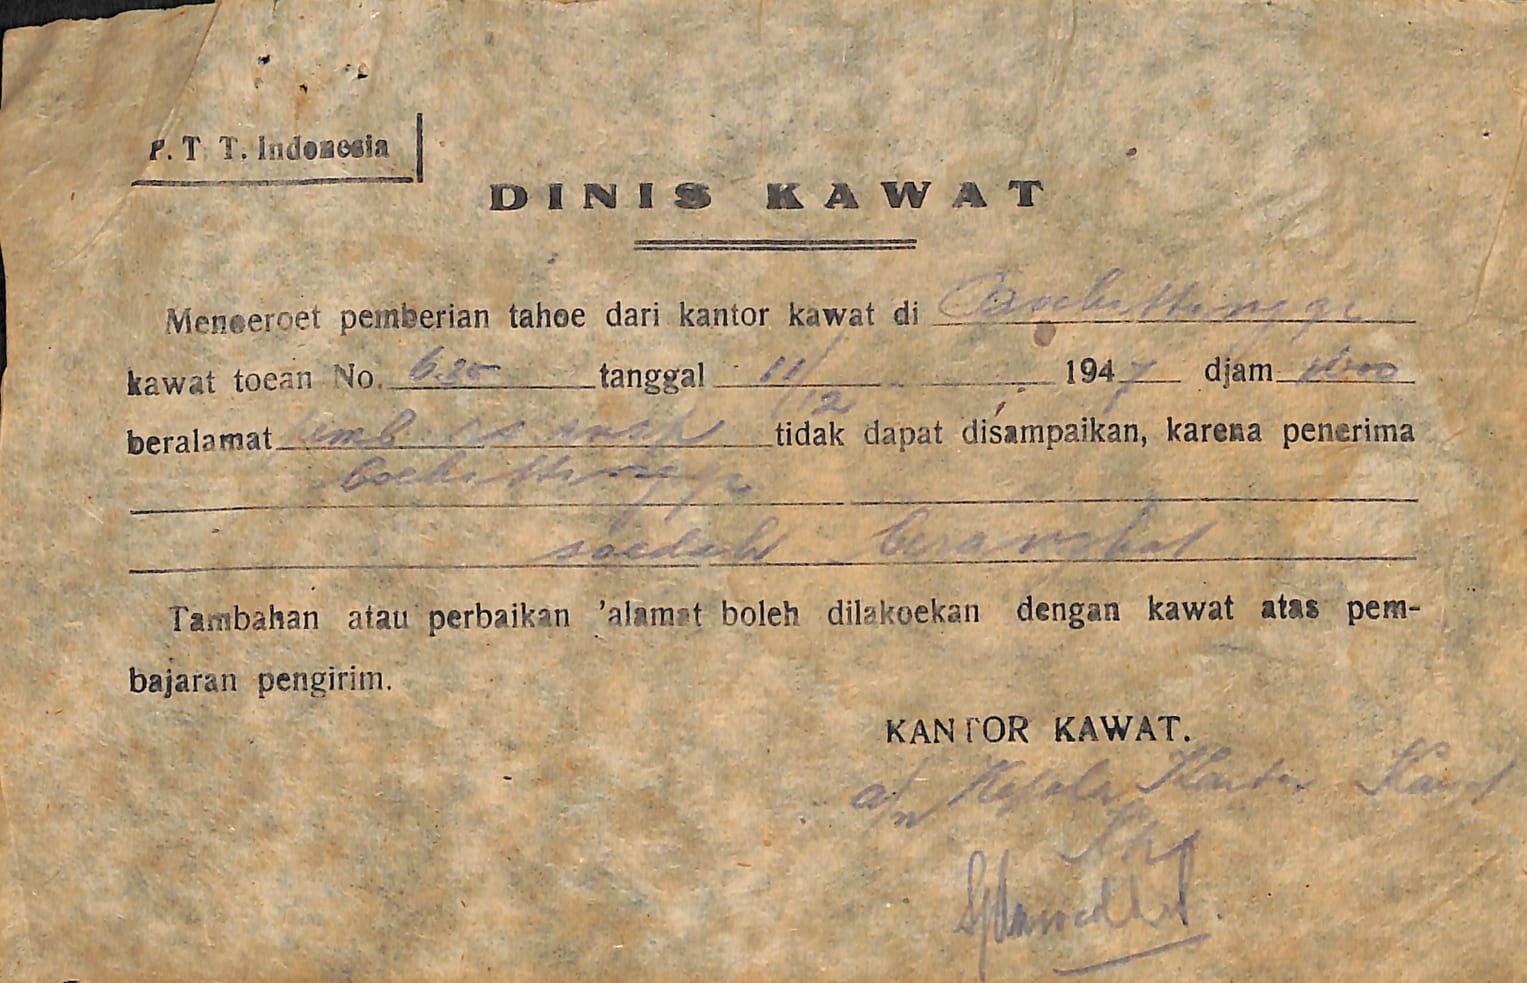 P. T. T. Indonesia
DINIS KAWAT
Menoeroet pemberian tahoe dari kantor kawat di Boekittinggi
kawat toean No. 635 tanggal 11/12 1947 djam
beralamat tidak dapat disampaikan, karena penerima
boekittinggi
soedah berangkat
Tambahan atau perbaikan 'alamat boleh dilakoekan dengan kawat atas pem-
bajaran pengirim.
KANTOR KAWAT.
a/n Kepala Kantor Kawat